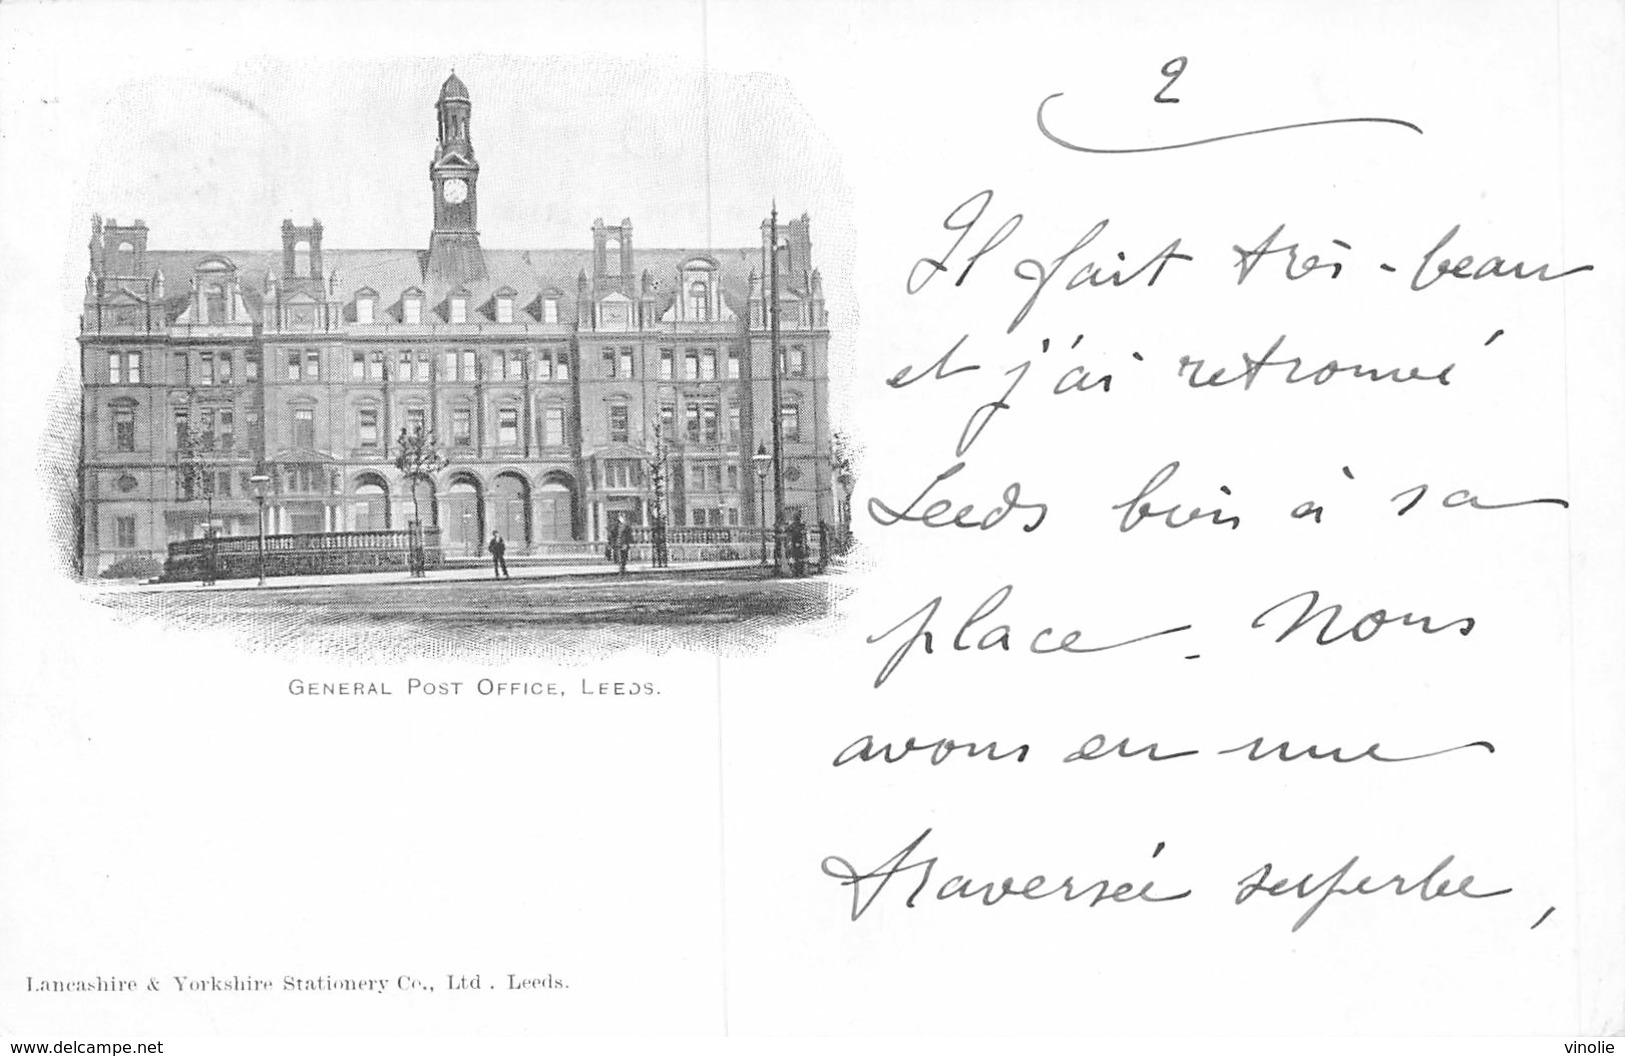 2
Il fait très-beau
et j'ai retrouvé
Leeds bien à sa
place. Nous
avons eu une
traversée superbe,
GENERAL POST OFFICE, LEEDS.
Lancashire & Yorkshire Stationery Co., Ltd. Leeds.
www.delcampe.net
vinolie